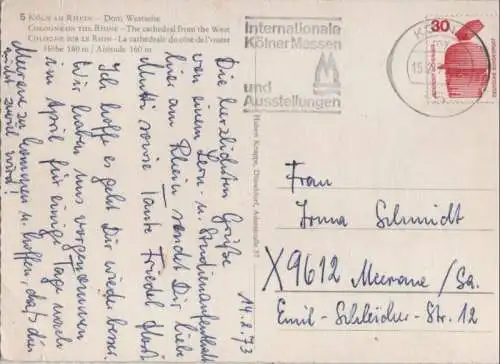 5 KÖLN AM RHEIN – Dom, Westseite
COLOGNE ON THE RHINE – The cathedral from the West
COLOGNE SUR LE RHIN – La cathédrale du côté de l'ouest
Höhe 160 m / Altitude 160 m
Internationale
Kölner Messen
und
Ausstellungen
KÖLN
15.2.
30
14.2.73
Die herzlichsten Grüße
von einem Lern- u. Studienaufenthalt
hier am Rhein sendet Dir liebe
Mutti sowie Tante Friedel
Ich hoffe es geht Dir wieder besser.
Wir haben uns vorgenommen
im April für einige Tage nach
Meerane zu kommen u. hoffen, daß dir
nicht zuviel wird!
Hubert Knappe, Düsseldorf,
Frau
Irma Schmidt
X 9612 Meerane/Sa.
Emil-Schleicher-Str. 12